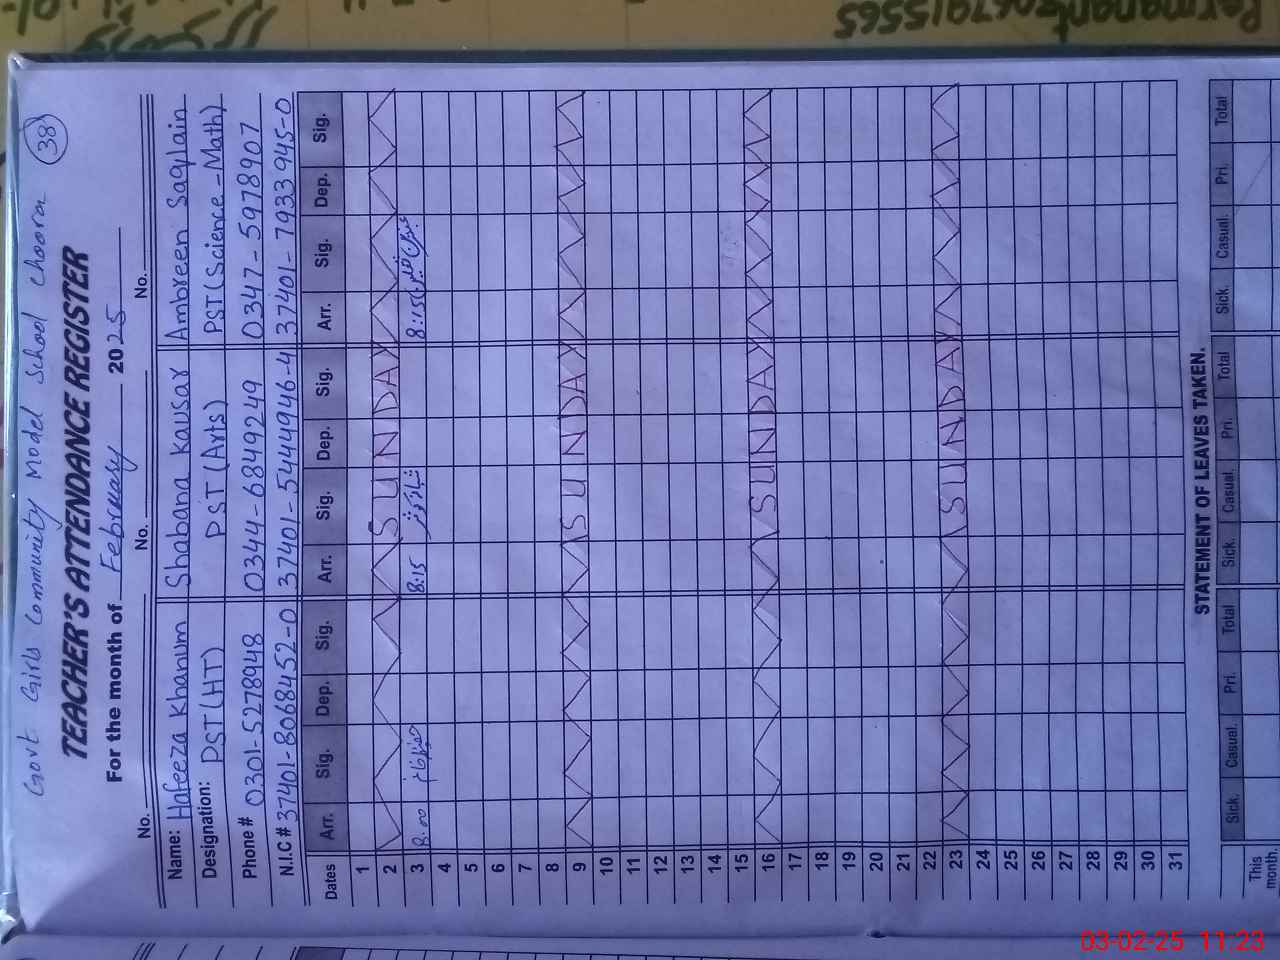 Govt. Girls Community Model School Choora 38
TEACHER'S ATTENDANCE REGISTER
For the month of February 2025
No. No. No.
Name: Hafeeza Khanum Shabana Kausar Ambreen Saqlain
Designation: PST(HT) PST (Arts) PST (Science-Math)
Phone # 0301-5278948 0344-6849249 0347-5978907
N.I.C # 37401-8068452-0 37401-5444946-4 37401-7933945-0
Dates Arr. Sig. Dep. Sig. Arr. Sig. Dep. Sig. Arr. Sig. Dep. Sig.
1
2 SUNDAY
3 8:00 8:15 شبانہ کوثر 8:15
4
5
6
7
8
9 SUNDAY
10
11
12
13
14
15
16 SUNDAY
17
18
19
20
21
22
23 SUNDAY
24
25
26
27
28
29
30
31
STATEMENT OF LEAVES TAKEN.
Sick. Casual. Pri. Total Sick. Casual. Pri. Total Sick. Casual. Pri. Total
This month.
Permanent 3067915565
03-02-25 11:23